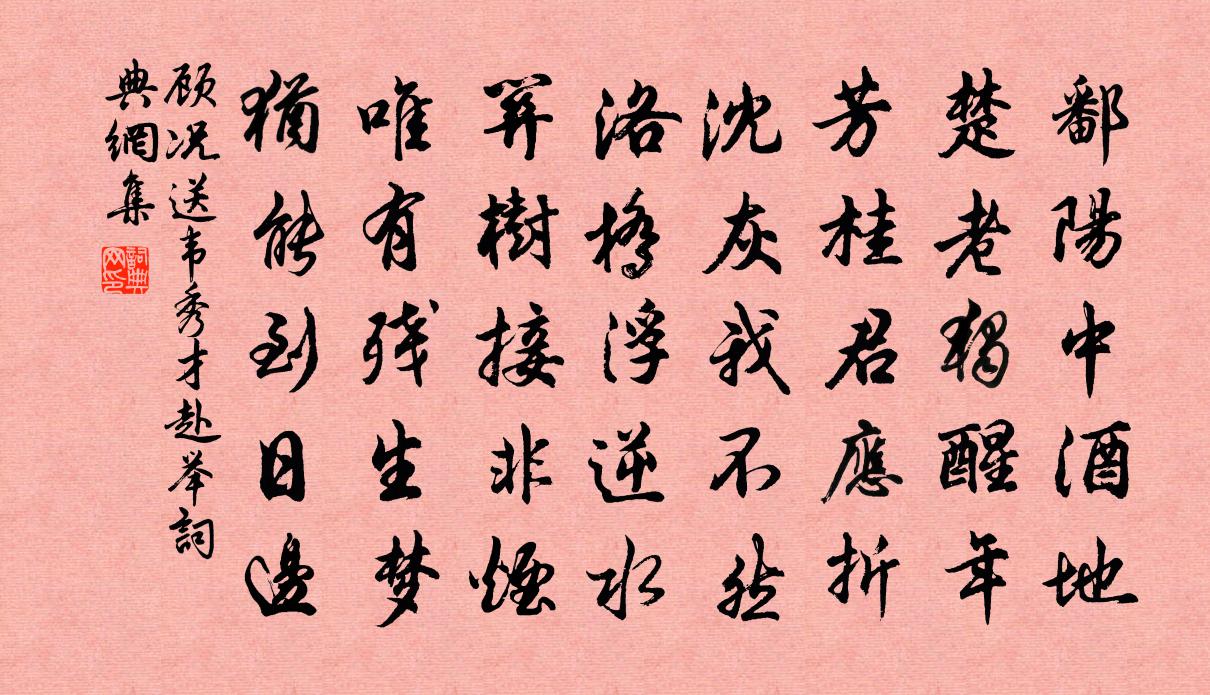 鄱陽中酒地
楚老獨醒年
芳桂君應折
沈灰我不然
洛橋浮逆水
關樹接非煙
唯有残生梦
猶能到日邊
顾况送韦秀才赴举詞
典網集
詞典网印